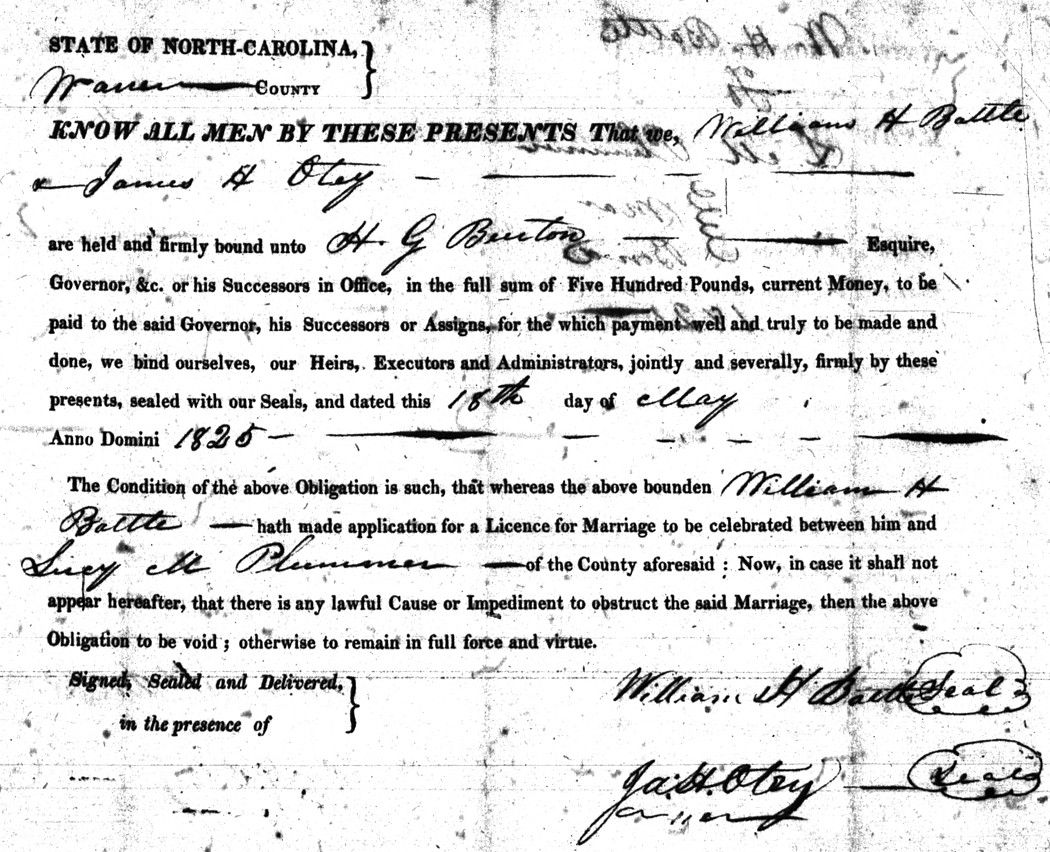 STATE OF NORTH-CAROLINA,
Warren COUNTY
KNOW ALL MEN BY THESE PRESENTS That we, William H Battle
& James H Otey
are held and firmly bound unto H. G Burton Esquire,
Governor, &c. or his Successors in Office, in the full sum of Five Hundred Pounds, current Money, to be
paid to the said Governor, his Successors or Assigns, for the which payment well and truly to be made and
done, we bind ourselves, our Heirs, Executors and Administrators, jointly and severally, firmly by these
presents, sealed with our Seals, and dated this 18th day of May
Anno Domini 1825
The Condition of the above Obligation is such, that whereas the above bounden William H
Battle hath made application for a Licence for Marriage to be celebrated between him and
Lucy M Plummer of the County aforesaid : Now, in case it shall not
appear hereafter, that there is any lawful Cause or Impediment to obstruct the said Marriage, then the above
Obligation to be void ; otherwise to remain in full force and virtue.
Signed, Sealed and Delivered,
in the presence of
William H Battle Seal
Ja: H. Otey Seal